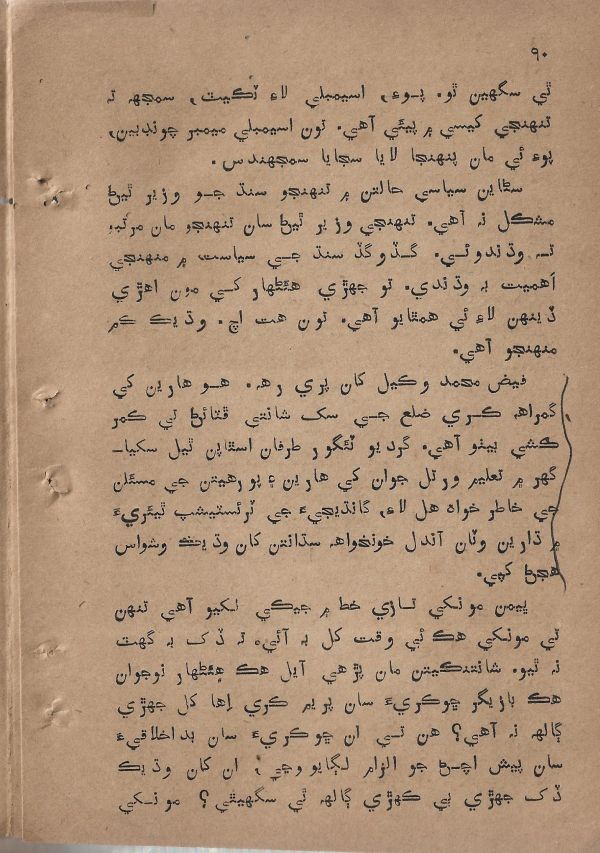 ٩٠
ٿي سگهين ٿو. پوءِ، اسيمبلي لاءِ ٽڪيٽ، سمجهه ته
تنهنجي کيسي ۾ پيئي آهي. تون اسيمبلي ميمبر چونڊبين،
پوءِ ئي مان پنهنجا لايا سجايا سمجهندس.
سٿاين سياسي حالتن ۾ تنهنجو سنڌ جو وزير ٿيڻ
مشڪل نه آهي. تنهنجي وزير ٿيڻ سان تنهنجو مان مرتبو
ته وڌندوئي. گڏوگڏ سنڌ جي سياست ۾ منهنجي
اَهميت به وڌندي. تو جهڙي هٿڻهار کي مون اهڙي
ڏينهن لاءِ ئي همٿايو آهي. تون هت اچ. وڌيڪ ڪم
منهنجو آهي.
فيض محمد وڪيل کان پري رهه. هو هارين کي
گمراهه ڪري ضلع جي سک شانتي ڦٽائڻ تي ڪمر
ڪشي بيٺو آهي. گرديو ٽئگور طرفان استاپن ٿيل سکيا-
گهر ۾ تعليم ورتل جوان کي هارين ۽ پورهيتن جي مسئلن
جي خاطر خواه هل لاءِ، گانڌيجيءَ جي ٽرئسٽيشپ ٿيئريءَ
۾ ڌارين وٽان آندل خونخواهه سڌانتن کان وڌيڪ وشواس
هجڻ کپي.
ڀيمن مونکي تازي خط ۾ جيڪي لکيو آهي تنهن
تي مونکي هڪ ئي وقت کل به آئي، ته ڏک به گهٽ
نه ٿيو. شانتنڪيتن مان پڙهي آيل هڪ هٿڻهار نوجوان
هڪ بازيگر ڇوڪريءَ سان پريم ڪري اِها کل جهڙي
ڳالهه نه آهي؟ هن تي ان ڇوڪريءَ سان بداخلاقيءَ
سان پيش اچڻ جو الزام لڳايو وڃي، ان کان وڌيڪ
ڏک جهڙي ٻي ڪهڙي ڳالهه ٿي سگهيٿي؟ مونکي